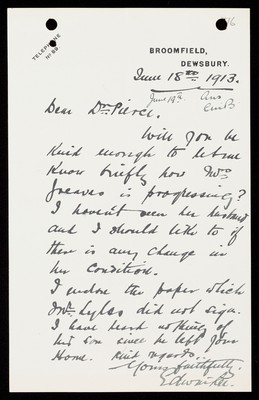 16
TELEPHONE
No 89
BROOMFIELD,
DEWSBURY.
June 18th 1913.
June 19th Ans
Dear Dr. Pierce,
Will you be
kind enough to let me
know briefly how Mrs
Greaves is progressing?
I haven't seen her husband
and I should like to if
there is any change in
her condition.
I enclose the paper which
Mr. Sykes did not sign.
I have heard nothing of
his son since he left your
Home. Kind regards.
Yours faithfully,